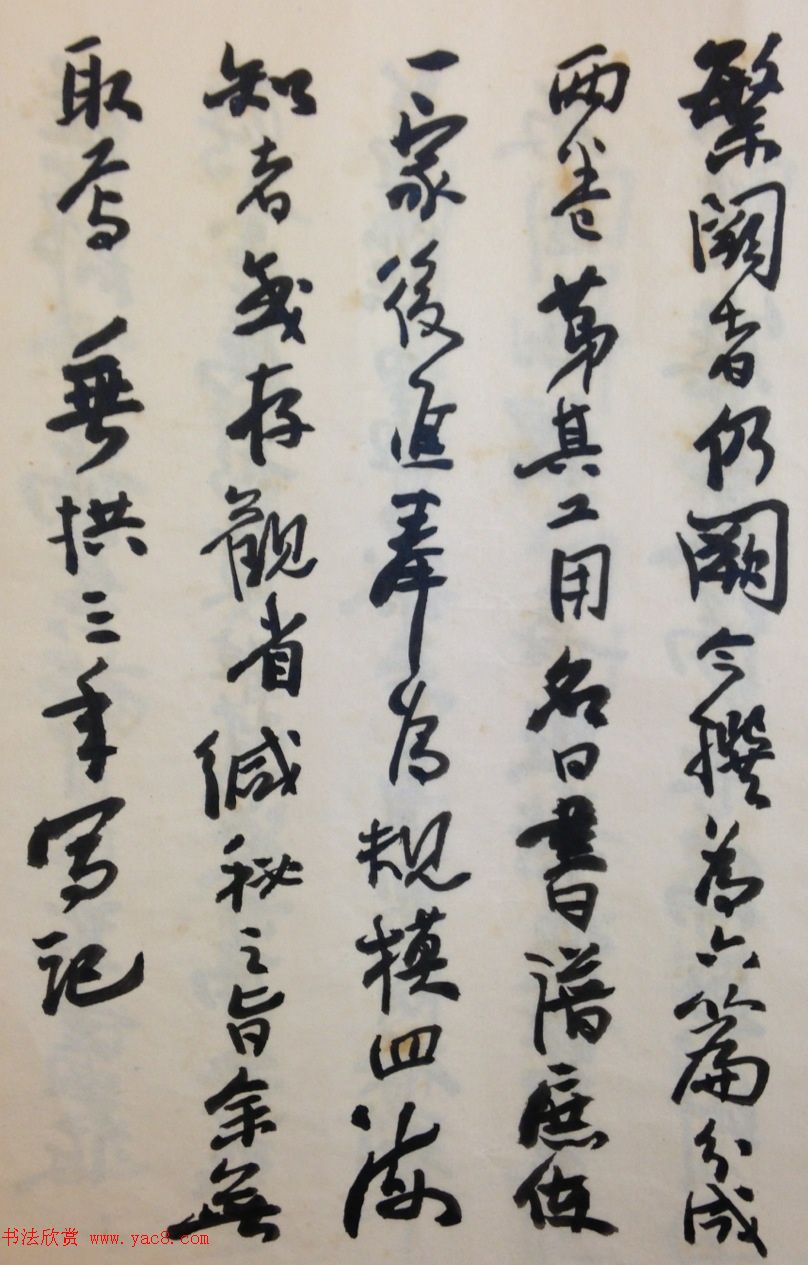 繁闕者仍闕今撰為六篇分成
兩卷第其工用名曰書譜庶使
一家後進奉為規模四海
知者或存觀省緘秘之旨余無
取焉 垂拱三年寫記
书法欣赏 www.yac8.com